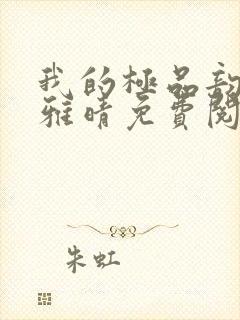 我的極品
雅晴免費閱
朱虹